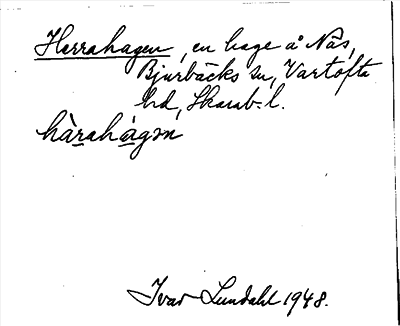 Herrahagen, en hage å Näs,
Bjurbäcks sn, Vartofta
hd, Skarab. l.
hàrahàgən
Ivar Lundahl 1948.